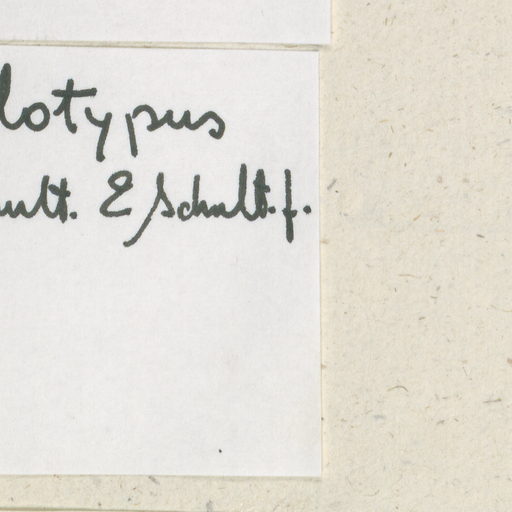 lotypus
ult. & Schult. f.